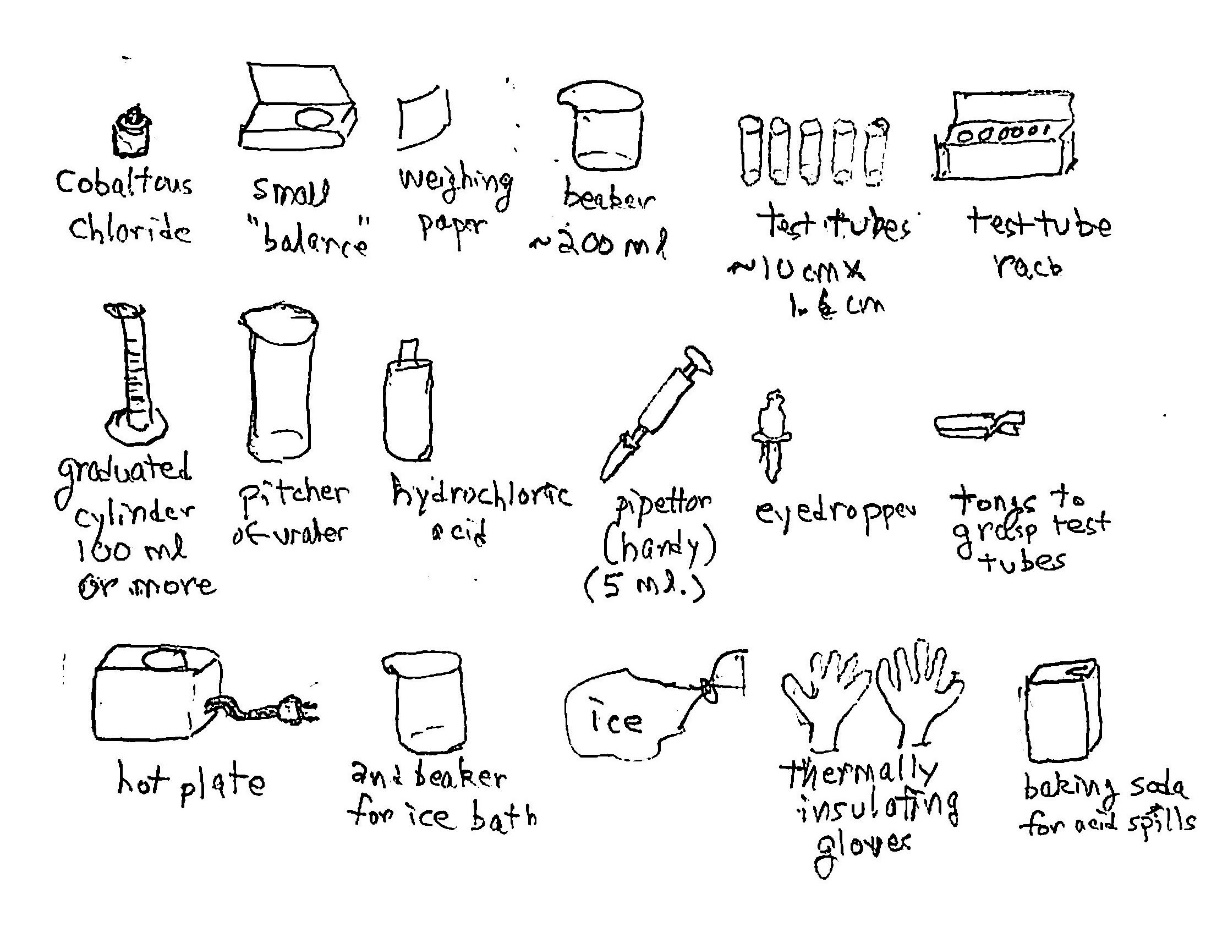 Cobaltous
chloride
small
"balance"
weighing
paper
beaker
~200 ml
test tubes
~10 cm x
cm
test tube
rack
graduated
cylinder
100 ml
or more
pitcher
of water
hydrochloric
acid
pipettor
(handy)
(5 ml.)
eyedropper
tongs to
grasp test
tubes
hot plate
and beaker
for ice bath
ice
thermally
insulating
gloves
baking soda
for acid spills